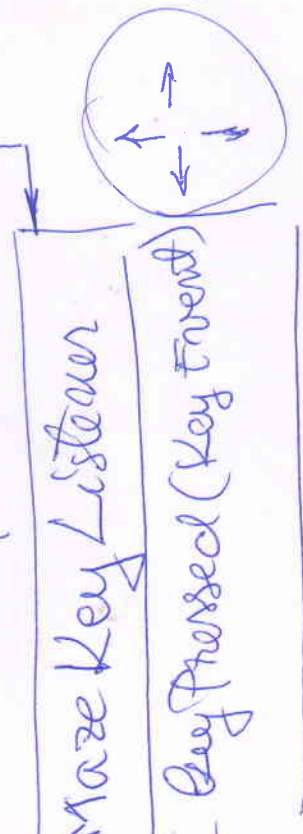 Maze Key Listener
- Key Pressed (Key Event)